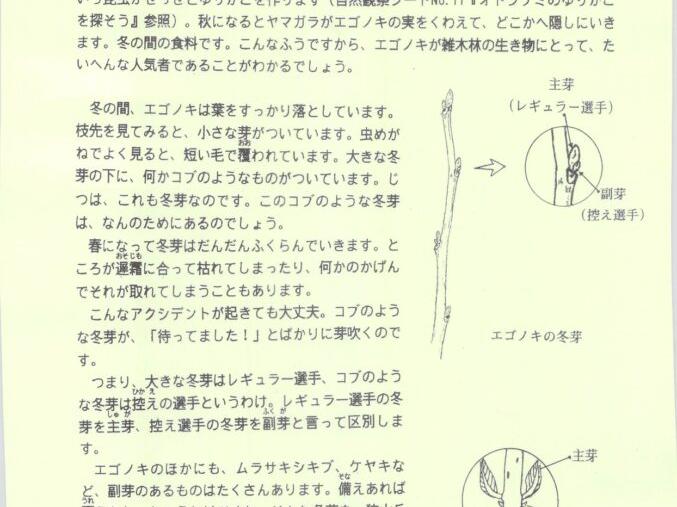 を探そう』参照）。秋になるとヤマガラがエゴノキの実をくわえて、どこかへ隠しにいき
ます。冬の間の食料です。こんなふうですから、エゴノキが雑木林の生き物にとって、た
いへんな人気者であることがわかるでしょう。
冬の間、エゴノキは葉をすっかり落としています。
枝先を見てみると、小さな芽がついています。虫めが
ねでよく見ると、短い毛で覆われています。大きな冬
芽の下に、何かコブのようなものがついています。じ
つは、これも冬芽なのです。このコブのような冬芽
は、なんのためにあるのでしょう。
春になって冬芽はだんだんふくらんでいきます。と
ころが遅霜に合って枯れてしまったり、何かのかげん
でそれが取れてしまうこともあります。
こんなアクシデントが起きても大丈夫。コブのよう
な冬芽が、「待ってました！」とばかりに芽吹くので
す。
つまり、大きな冬芽はレギュラー選手、コブのよう
な冬芽は控えの選手というわけ。レギュラー選手の冬
芽を主芽、控え選手の冬芽を副芽と言って区別しま
す。
エゴノキのほかにも、ムラサキシキブ、ケヤキな
ど、副芽のあるものはたくさんあります。備えあれば
主芽
（レギュラー選手）
副芽
（控え選手）
エゴノキの冬芽
主芽